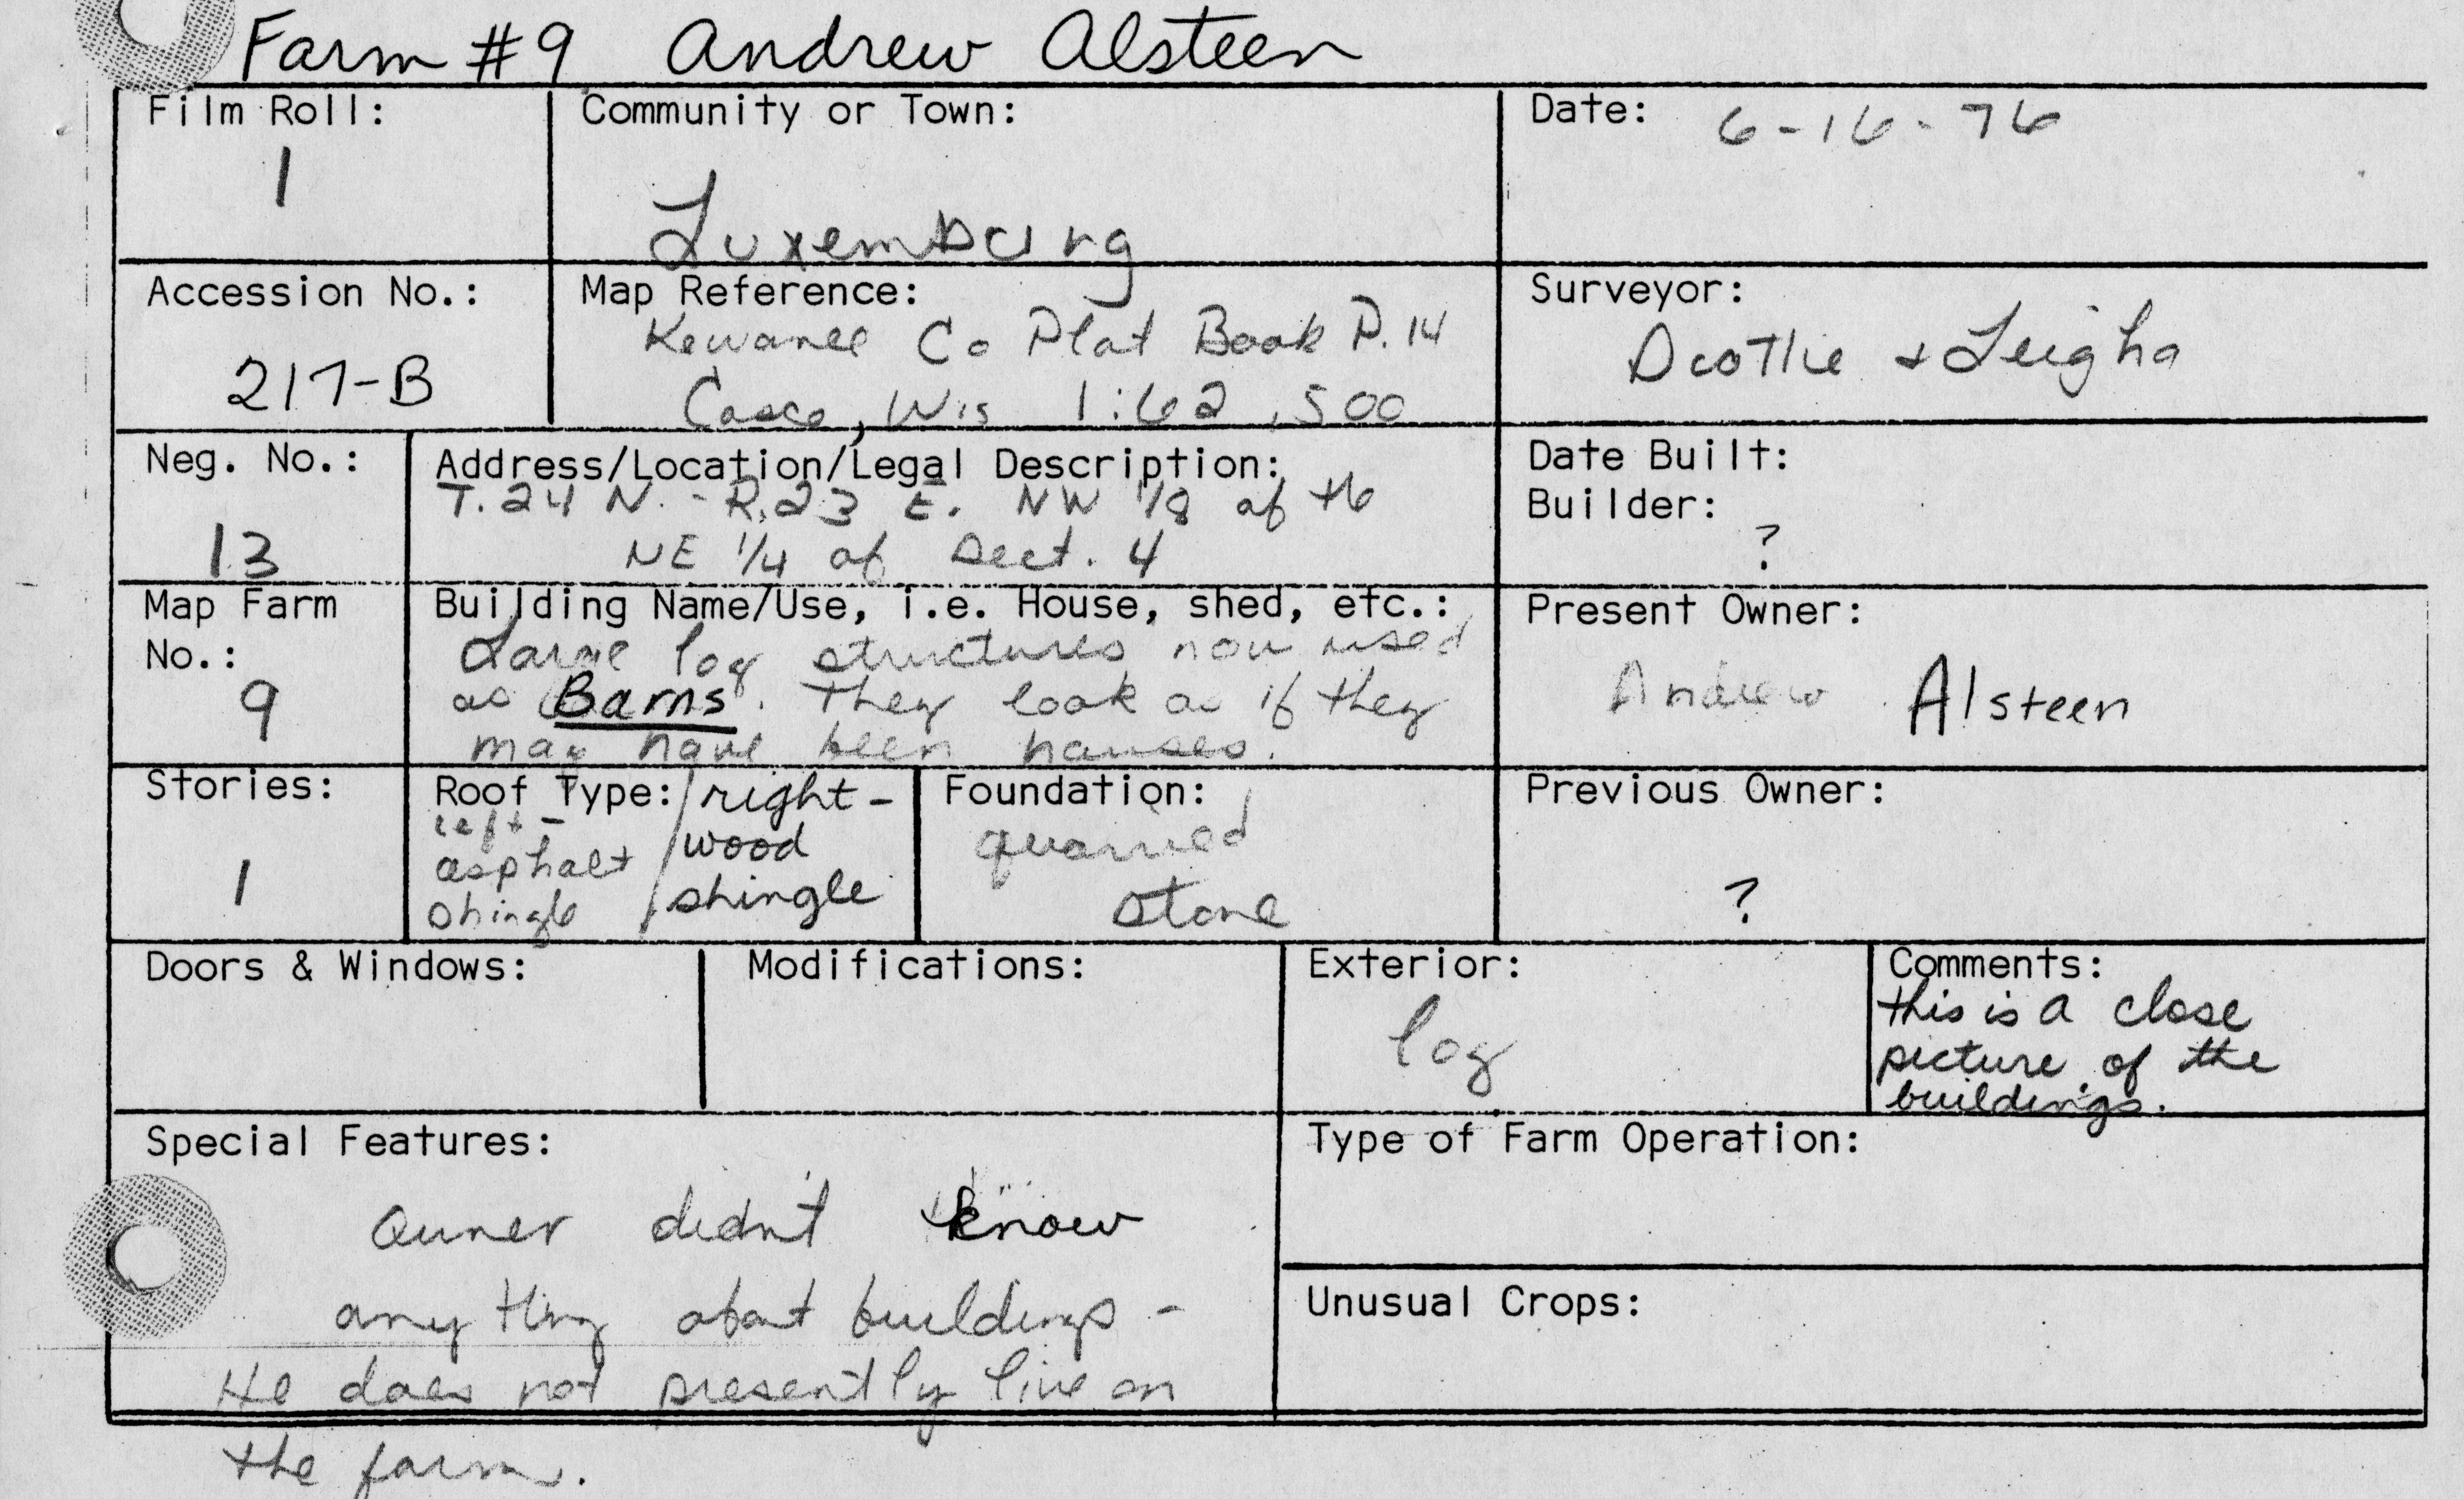 Farm #9 Andrew Alsteen
Film Roll:
1
Community or Town:
Luxemburg
Date: 6-16-76
Accession No.:
217-B
Map Reference:
Kewanee Co Plat Book P. 14
Casco, Wis 1:62,500
Surveyor:
& Leigha
Neg. No.:
13
Address/Location/Legal Description:
T. 24 N. - R. 23 E. NW 1/8 of
NE 1/4 of Sect. 4
Date Built:
Builder:
?
Map Farm
No.:
9
Building Name/Use, i.e. House, shed, etc.:
Large log structures now used
as Barns. They look as if they
may have been houses.
Present Owner:
Andrew Alsteen
Stories:
1
Roof Type:
left -
asphalt
shingle
/ right -
wood
shingle
Foundation:
quarried
stone
Previous Owner:
?
Doors & Windows:
Modifications:
Exterior:
log
Comments:
this is a close
picture of the
buildings.
Special Features:
Owner didn't know
any thing about buildings -
He does not presently live on
the farm.
Type of Farm Operation:
Unusual Crops: